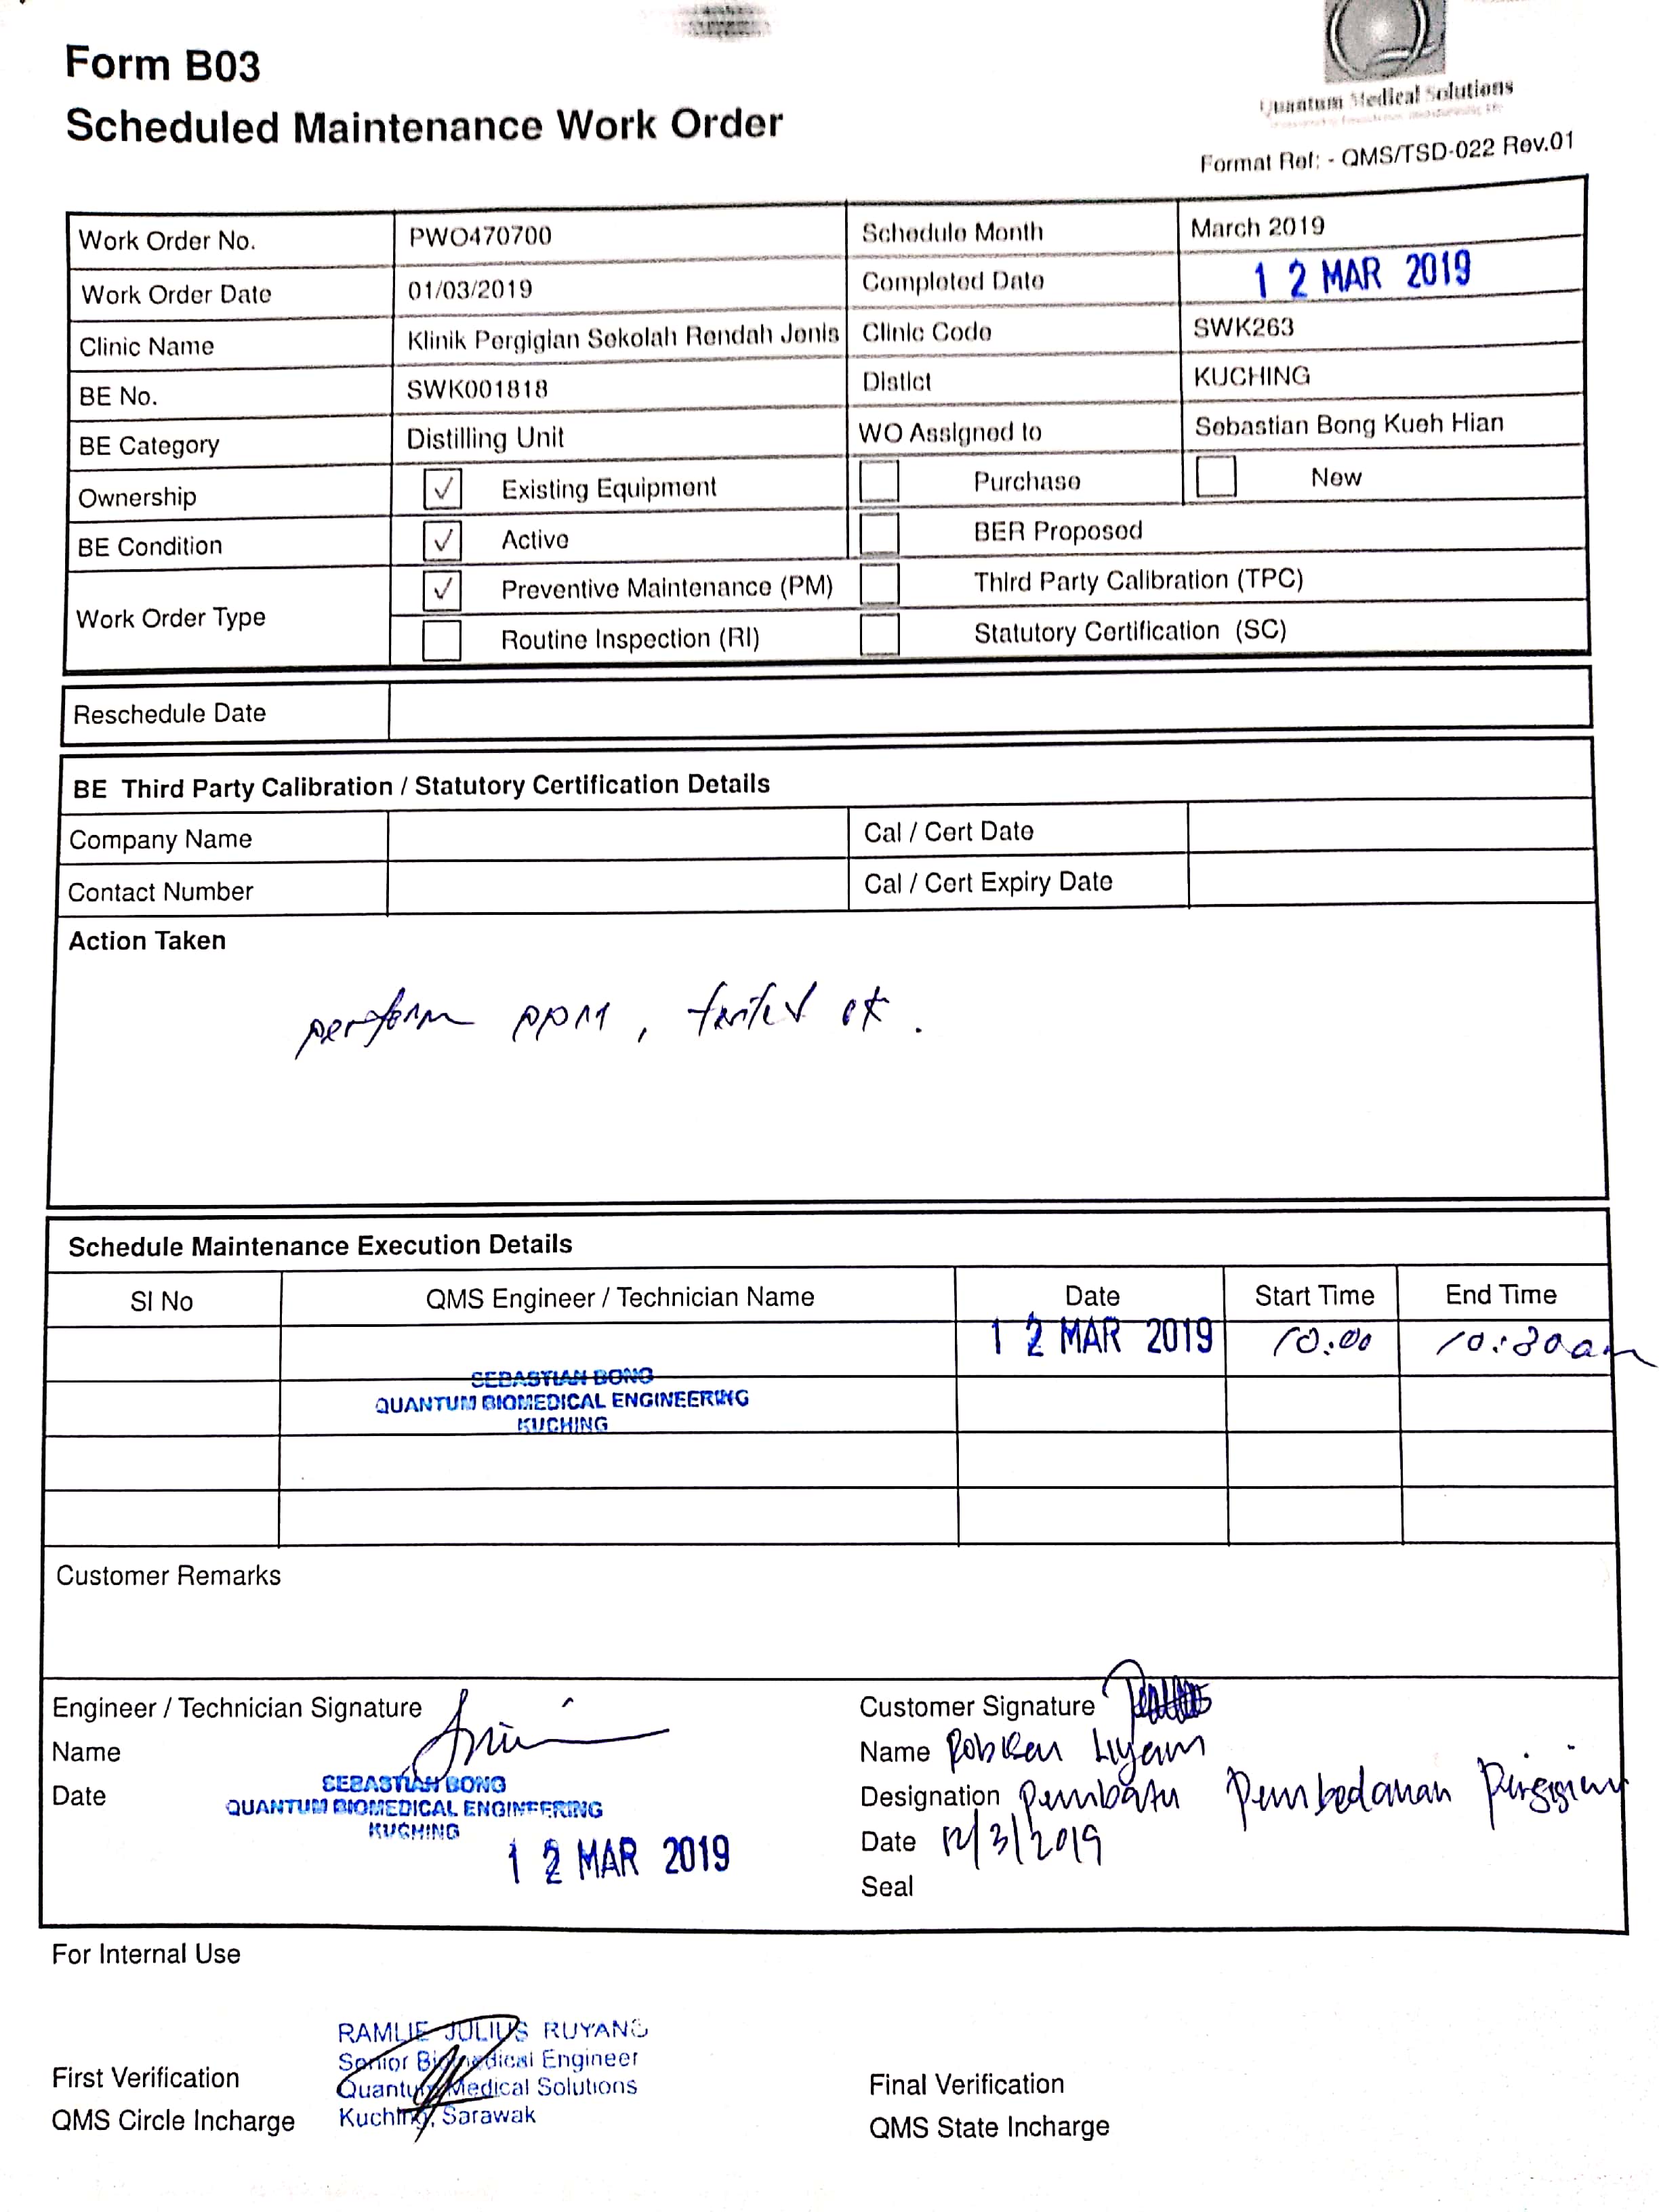 Form B03
Scheduled Maintenance Work Order
Quantum Medical Solutions
Format Ref: - QMS/TSD-022 Rev.01
Work Order No. PWO470700 Schedule Month March 2019
Work Order Date 01/03/2019 Completed Date 12 MAR 2019
Clinic Name Klinik Pergigian Sekolah Rendah Jenis Clinic Code SWK263
BE No. SWK001818 Distict KUCHING
BE Category Distilling Unit WO Assigned to Sebastian Bong Kueh Hian
Ownership ✓ Existing Equipment Purchase New
BE Condition ✓ Active BER Proposed
Work Order Type ✓ Preventive Maintenance (PM) Third Party Calibration (TPC)
Routine Inspection (RI) Statutory Certification (SC)
Reschedule Date
BE Third Party Calibration / Statutory Certification Details
Company Name Cal / Cert Date
Contact Number Cal / Cert Expiry Date
Action Taken
perform ppm, tested ok.
Schedule Maintenance Execution Details
Sl No QMS Engineer / Technician Name Date Start Time End Time
12 MAR 2019 10:00 10:30am
SEBASTIAN BONG
QUANTUM BIOMEDICAL ENGINEERING
KUCHING
Customer Remarks
Engineer / Technician Signature Customer Signature
Name Name
Date SEBASTIAN BONG Designation Pembatu Pembedanan Pergigian
QUANTUM BIOMEDICAL ENGINEERING
KUCHING Date 12/3/2019
12 MAR 2019
Seal
For Internal Use
RAMLIE JULIUS RUYANG
Senior Biomedical Engineer
First Verification Quantum Medical Solutions Final Verification
QMS Circle Incharge Kuching, Sarawak QMS State Incharge